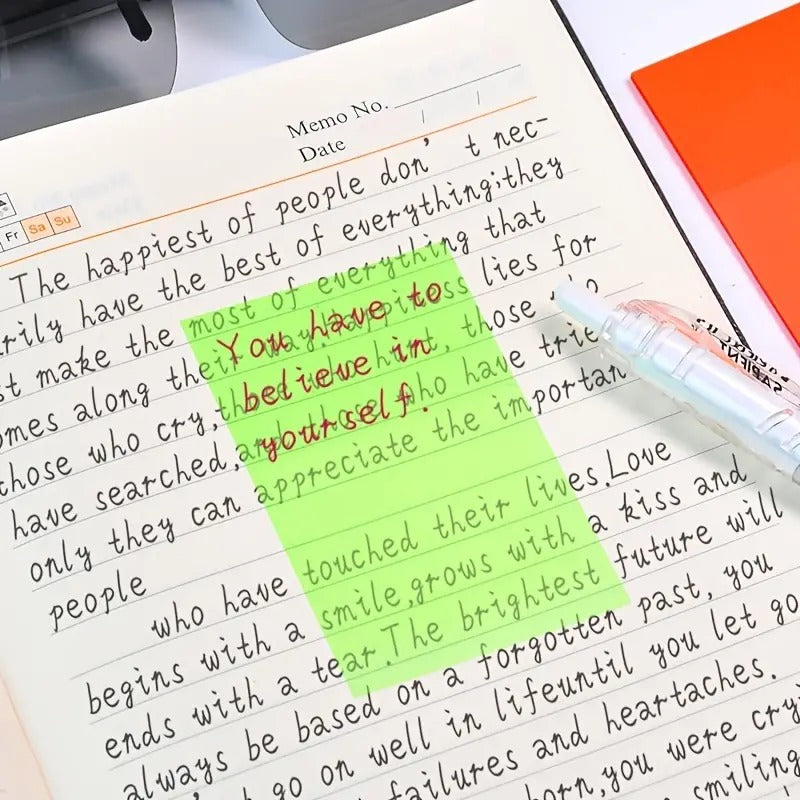 Memo No.
Date / /
Fr Sa Su
The happiest of people don't nec-
rily have the best of everything;they
st make the most of everything that
omes along their way.Happiness lies for
those who cry,those who hurt, those who
have searched,and those who have trie
only they can appreciate the importan
people
who have touched their lives.Love
begins with a smile,grows with a kiss and
ends with a tear.The brightest future will
always be based on a forgotten past, you
go on well in lifeuntil you let go
failures and heartaches.
orn,you were cryi
smiling
You have to
believe in
yourself.
SAPIENT